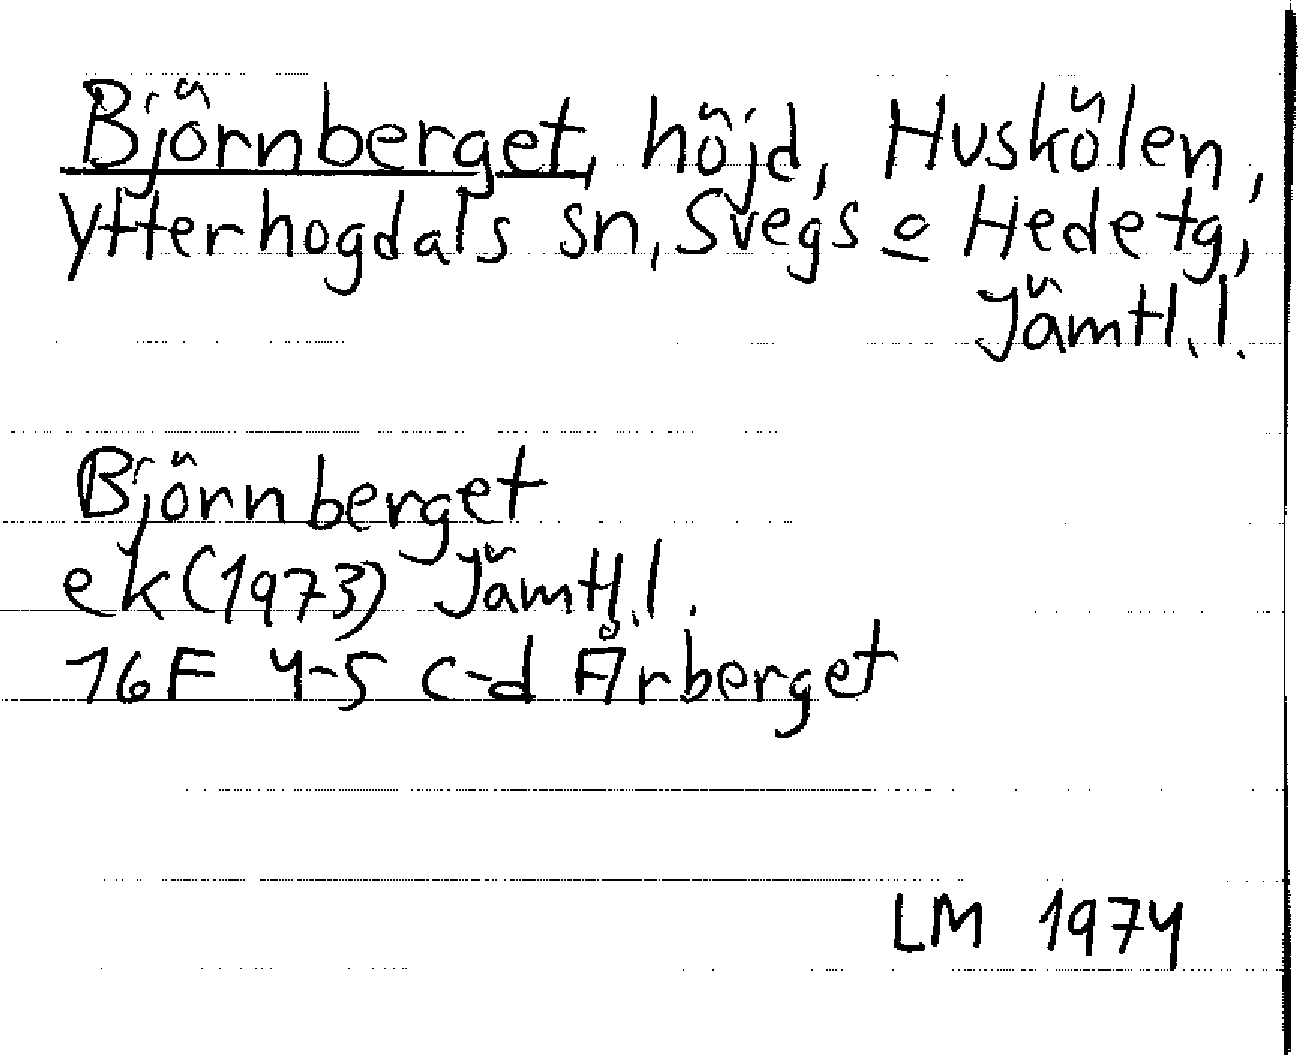 Björnberget, höjd, Huskölen,
Ytterhogdals sn, Svegs o Hede tg,
Jämtl. l.
Björnberget
ek (1973) Jämtl. l.
16F 4-5 c-d Årberget
LM 1974